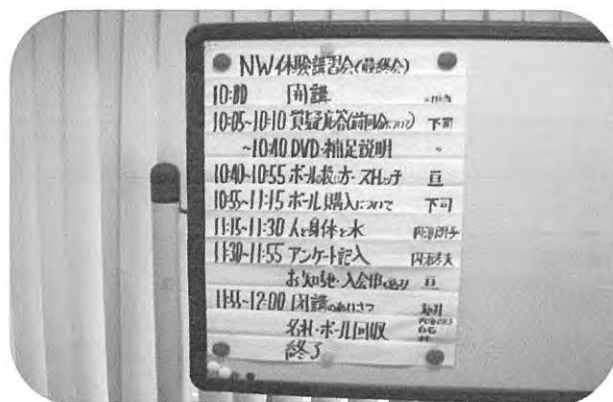 NW体験講習会(最終会)
10:00 開講
10:05~10:10 質疑応答(前回分について) 下司
~10:40 DVD・補足説明 〃
10:40~10:55 ポールの扱い方・ストレッチ 亘
10:55~11:15 ポール購入について 下司
11:15~11:30 人と身体と水
11:30~11:55 アンケート記入
お知らせ・入会申し込み 亘
11:55~12:00 閉講のあいさつ
名札・ポール回収
終了